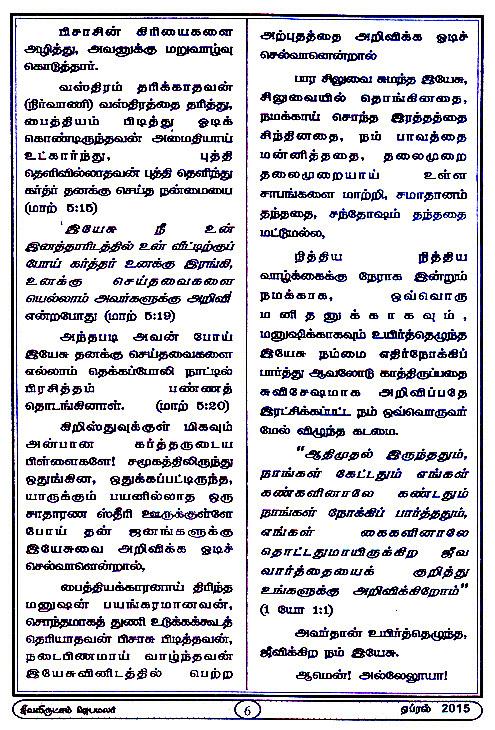 பிசாசின் கிரியைகளை
அழித்து, அவனுக்கு மறுவாழ்வு
கொடுத்தார்.
வஸ்திரம் தரிக்காதவன்
(நிர்வாணி) வஸ்திரத்தை தரித்து,
பைத்தியம் பிடித்து ஓடிக்
கொண்டிருந்தவன் அமைதியாய்
உட்கார்ந்து, புத்தி
தெளிவில்லாதவன் புத்தி தெளிந்து
கர்த்தர் தனக்கு செய்த நன்மையை
(மாற் 5:15)
'இயேசு நீ உன்
இனத்தாரிடத்தில் உன் வீட்டிற்குப்
போய் கர்த்தர் உனக்கு இரங்கி,
உனக்கு செய்தவைகளை
யெல்லாம் அவர்களுக்கு அறிவி'
என்றபோது (மாற் 5:19)
அந்தபடி அவன் போய்
இயேசு தனக்கு செய்தவைகளை
எல்லாம் தெக்கப்போலி நாட்டில்
பிரசித்தம் பண்ணத்
தொடங்கினாள். (மாற் 5:20)
கிறிஸ்துவுக்குள் மிகவும்
அன்பான கர்த்தருடைய
பிள்ளைகளே! சமூகத்திலிருந்து
ஒதுங்கின, ஒதுக்கப்பட்டிருந்த,
யாருக்கும் பயனில்லாத ஒரு
சாதாரண ஸ்திரீ ஊருக்குள்ளே
போய் தன் ஜனங்களுக்கு
இயேசுவை அறிவிக்க ஓடிச்
செல்வாளென்றால்,
பைத்தியக்காரனாய் திரிந்த
மனுஷன் பயங்கரமானவன்,
சொந்தமாகத் துணி உடுக்கக்கூடத்
தெரியாதவன் பிசாசு பிடித்தவன்,
நடைபிணமாய் வாழ்ந்தவன்
இயேசுவினிடத்தில் பெற்ற
அற்புதத்தை அறிவிக்க ஓடிச்
செல்வானென்றால்
பார சிலுவை சுமந்த இயேசு,
சிலுவையில் தொங்கினதை,
நமக்காய் சொந்த இரத்தத்தை
சிந்தினதை, நம் பாவத்தை
மன்னித்ததை, தலைமுறை
தலைமுறையாய் உள்ள
சாபங்களை மாற்றி, சமாதானம்
தந்ததை, சந்தோஷம் தந்ததை
மட்டுமல்ல,
நித்திய நித்திய
வாழ்க்கைக்கு நேராக இன்றும்
நமக்காக, ஒவ்வொரு
மனிதனுக்காகவும்,
மனுஷிக்காகவும் உயிர்த்தெழுந்த
இயேசு நம்மை எதிர்நோக்கிப்
பார்த்து ஆவலோடு காத்திருப்பதை
சுவிசேஷமாக அறிவிப்பதே
இரட்சிக்கப்பட்ட நம் ஒவ்வொருவர்
மேல் விழுந்த கடமை.
"ஆதிமுதல் இருந்ததும்,
நாங்கள் கேட்டதும் எங்கள்
கண்களினாலே கண்டதும்
நாங்கள் நோக்கிப் பார்த்ததும்,
எங்கள் கைகளினாலே
தொட்டதுமாயிருக்கிற ஜீவ
வார்த்தையைக் குறித்து
உங்களுக்கு அறிவிக்கிறோம்"
(1 யோ 1:1)
அவர்தான் உயிர்த்தெழுந்த,
ஜீவிக்கிற நம் இயேசு.
ஆமென்! அல்லேலூயா!
ஜீவவிருட்சம் ஜெபமலர் 6 ஏப்ரல் 2015